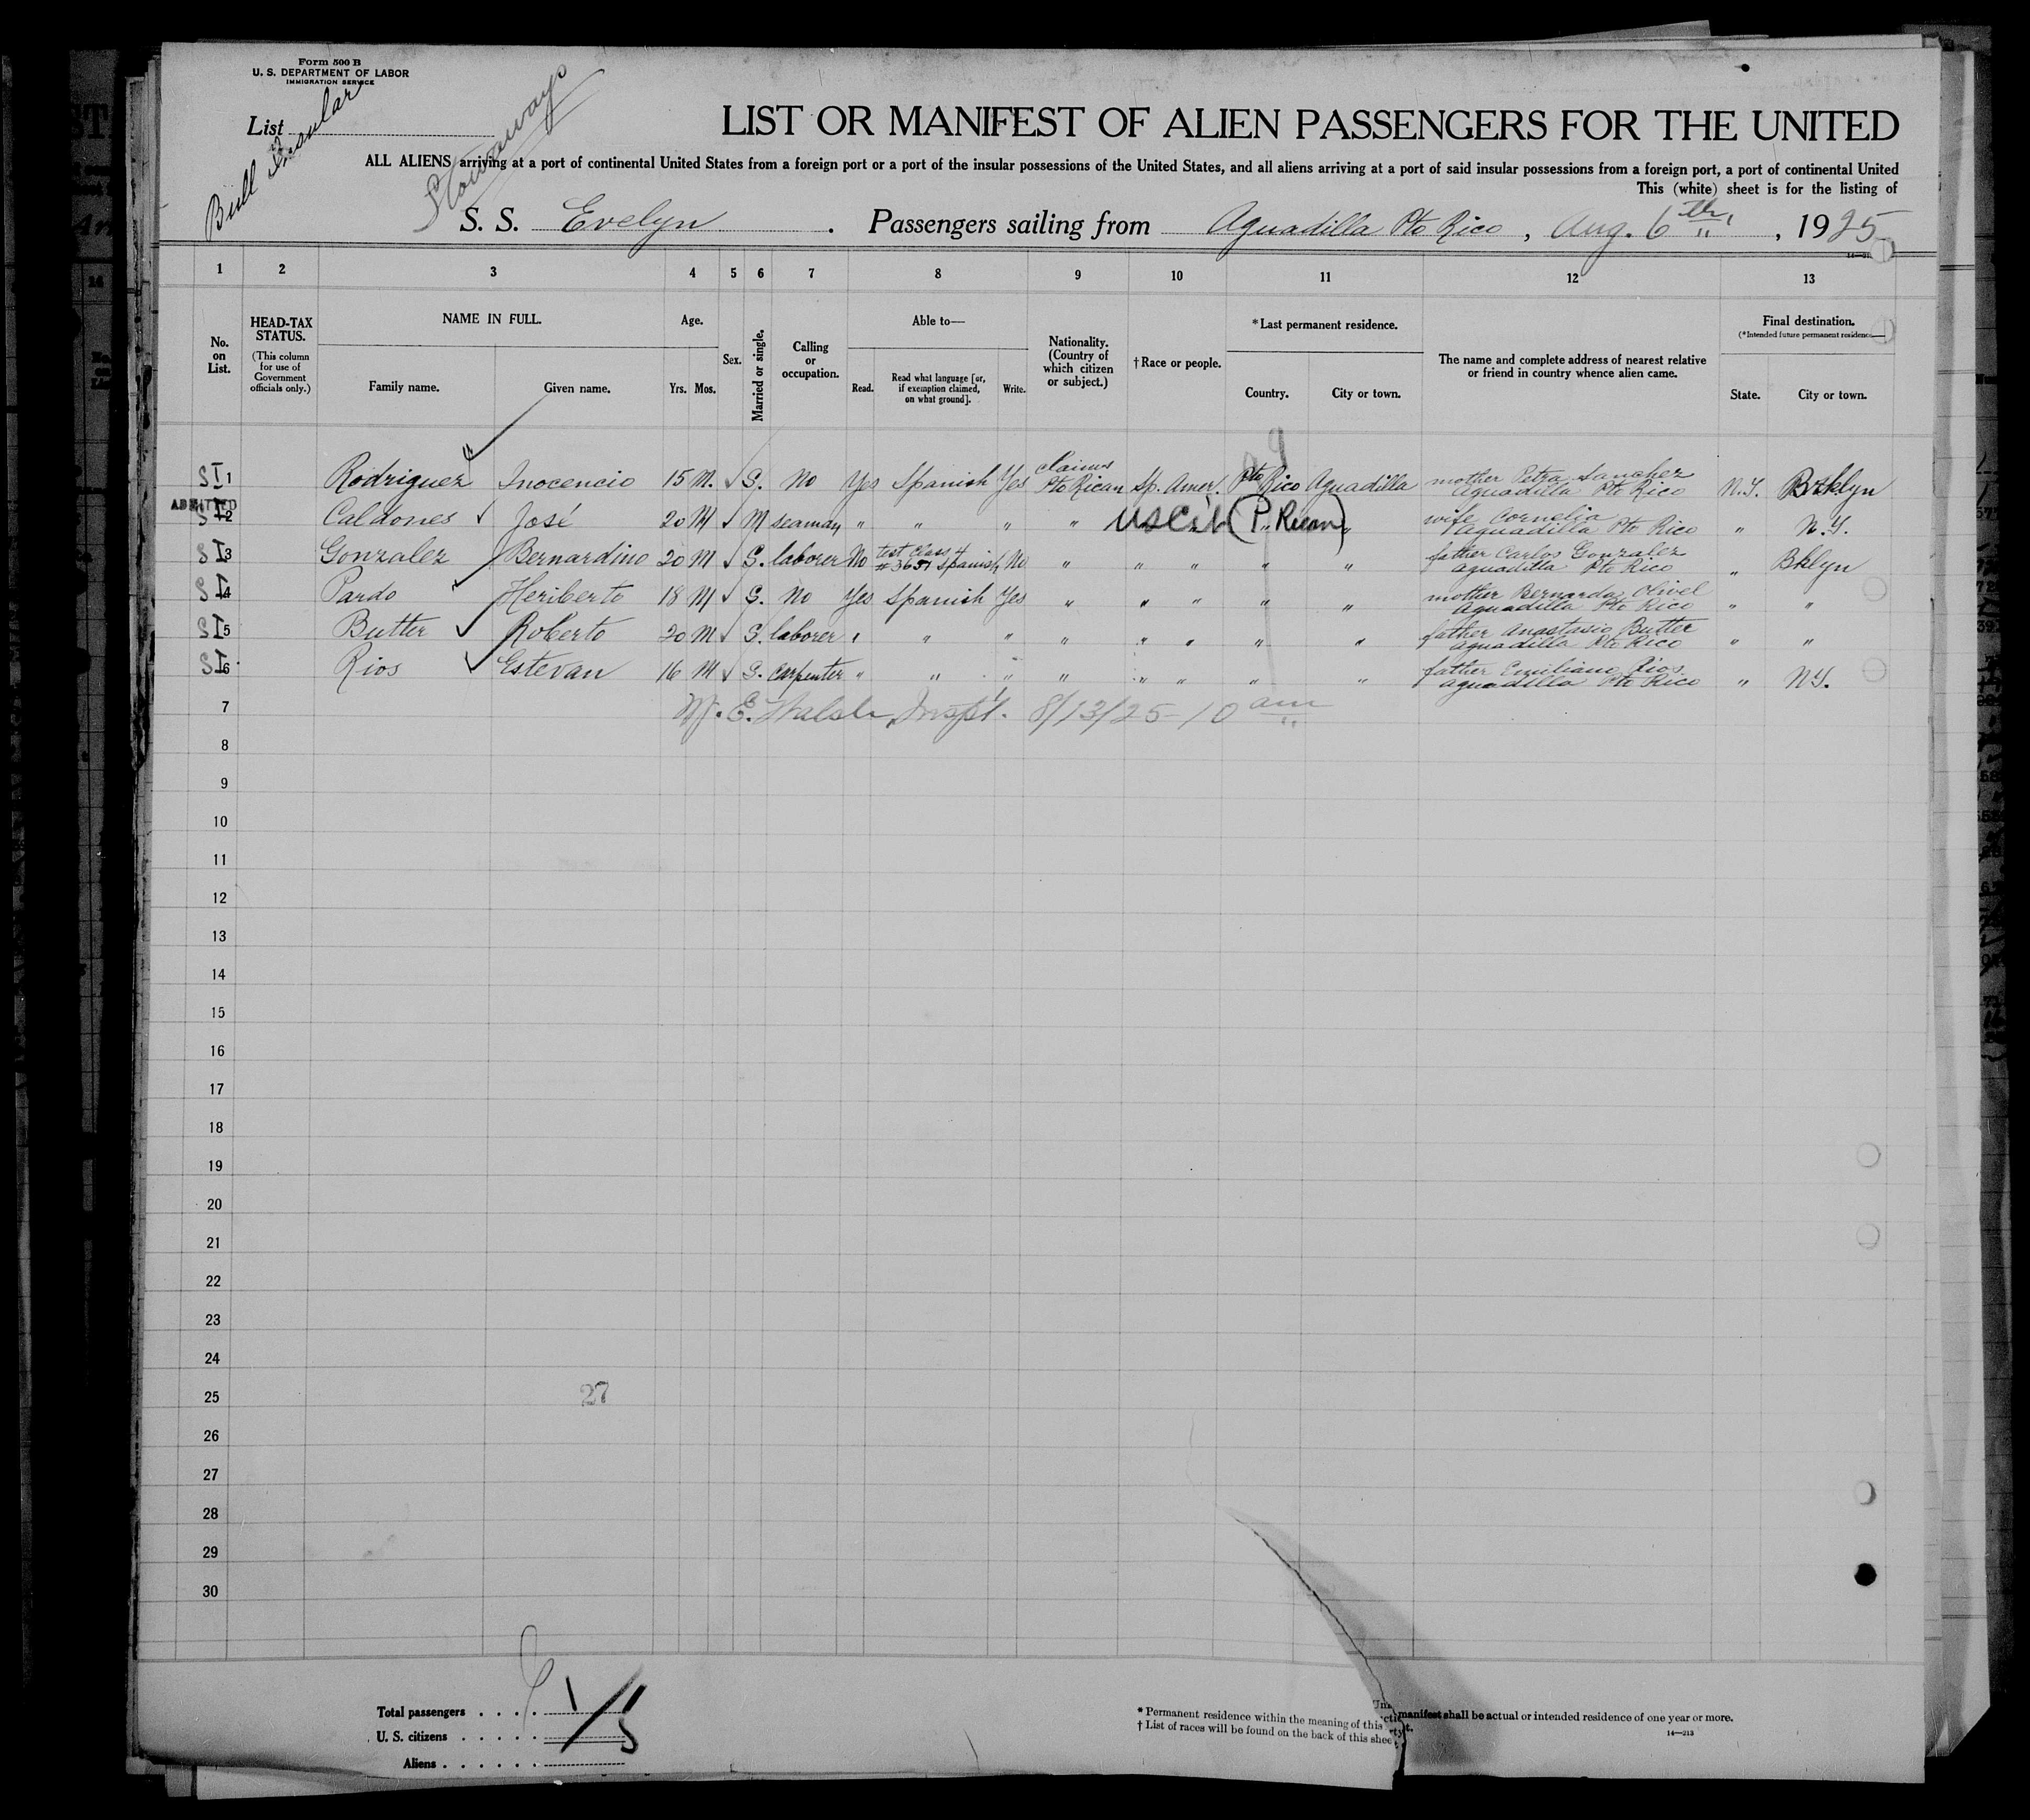 Form 500 B
U. S. DEPARTMENT OF LABOR
IMMIGRATION SERVICE
List
Bull Insular
Stowaways
LIST OR MANIFEST OF ALIEN PASSENGERS FOR THE UNITED
ALL ALIENS arriving at a port of continental United States from a foreign port or a port of the insular possessions of the United States, and all aliens arriving at a port of said insular possessions from a foreign port, a port of continental United
This (white) sheet is for the listing of
S. S. Evelyn. Passengers sailing from Aguadilla Pto Rico, Aug. 6th, 1925
1 2 3 4 5 6 7 8 9 10 11 12 13
No. on List.
HEAD-TAX STATUS.
(This column for use of Government officials only.)
NAME IN FULL.
Family name. Given name.
Age.
Yrs. Mos.
Sex.
Married or single.
Calling or occupation.
Able to—
Read. Read what language [or, if exemption claimed, on what ground]. Write.
Nationality. (Country of which citizen or subject.)
†Race or people.
*Last permanent residence.
Country. City or town.
The name and complete address of nearest relative or friend in country whence alien came.
Final destination.
(*Intended future permanent residence
State. City or town.
SI 1 Rodriguez Inocencio 15 M. ✓ S. No Yes Spanish Yes claims Pto Rican Sp. Amer. Pto Rico Aguadilla mother Petra Sanchez Aguadilla Pto Rico N.Y. Brklyn
ADMITTED
SI 2 Caldones ✓ José 20 M ✓ M seaman " " " " USCit (P. Rican) " wife Cornelia Aguadilla Pto Rico " N.Y.
SI 3 Gonzalez Bernardino 20 M ✓ S. laborer No test class 4 #3651 Spanish No " " " " " father Carlos Gonzalez Aguadilla Pto Rico " Bklyn
SI 4 Pardo ✓ Heriberto 18 M ✓ S. No Yes Spanish Yes " " " " " mother Bernarda Olivel Aguadilla Pto Rico " "
SI 5 Butter ✓ Roberto 20 M ✓ S. laborer " " " " " " " " father Anastasio Butter Aguadilla Pto Rico " "
SI 6 Rios ✓ Estevan 16 M ✓ S. carpenter " " " " " " " " father Emiliano Rios Aguadilla Pto Rico " N.Y.
7 W. E. Walsh, Inspt. 8/13/25-10 am
8
9
10
11
12
13
14
15
16
17
18
19
20
21
22
23
24
25 27
26
27
28
29
30
Total passengers . . . .
U. S. citizens . . . . . 1/5
Aliens . . . . . .
* Permanent residence within the meaning of this manifest shall be actual or intended residence of one year or more.
† List of races will be found on the back of this sheet.
14—213